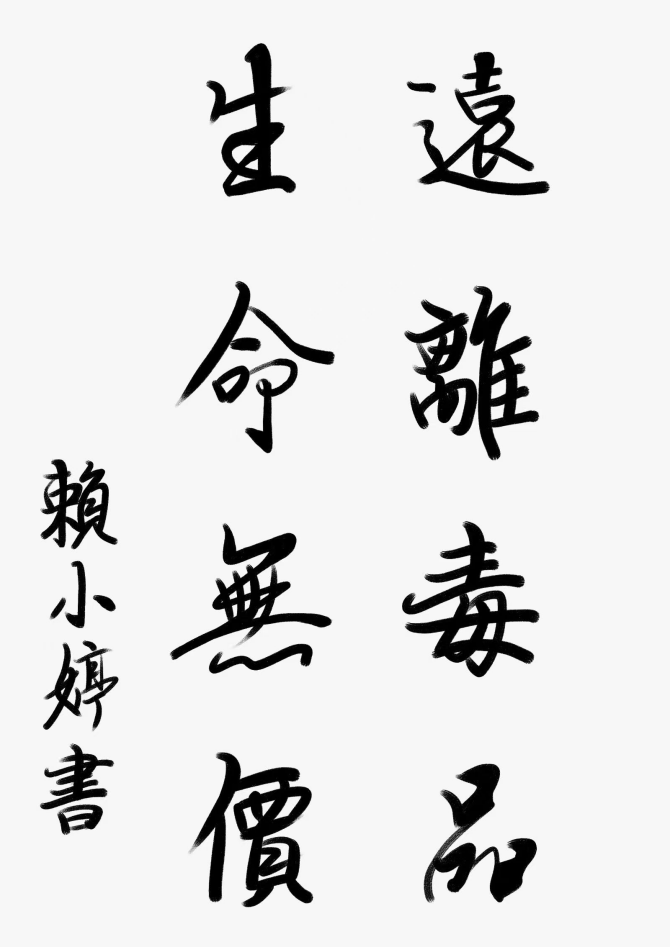 遠離毒品
生命無價
賴小婷書